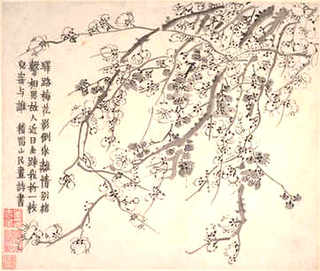 驛路梅花影倒垂離情別緒
繫相思故人近日全疎我折一枝
兒寄與誰 稽留山民畫詩書